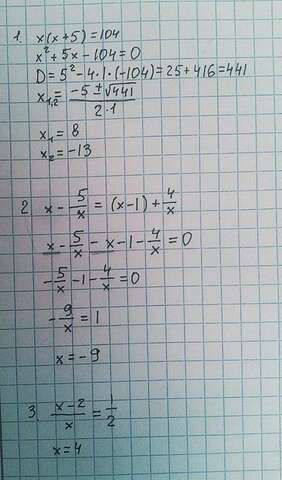 1. x(x+5)=104
x²+5x-104=0
D=5²-4·1·(-104)=25+416=441
x₁,₂=(-5±√441)/(2·1)
x₁=8
x₂=-13
2. x-5/x=(x-1)+4/x
x-5/x-x-1-4/x=0
-5/x-1-4/x=0
-9/x=1
x=-9
3. (x-2)/x=1/2
x=4